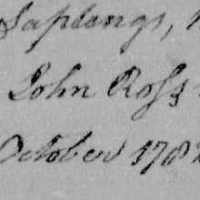 Saplings,
John Ross
October 178